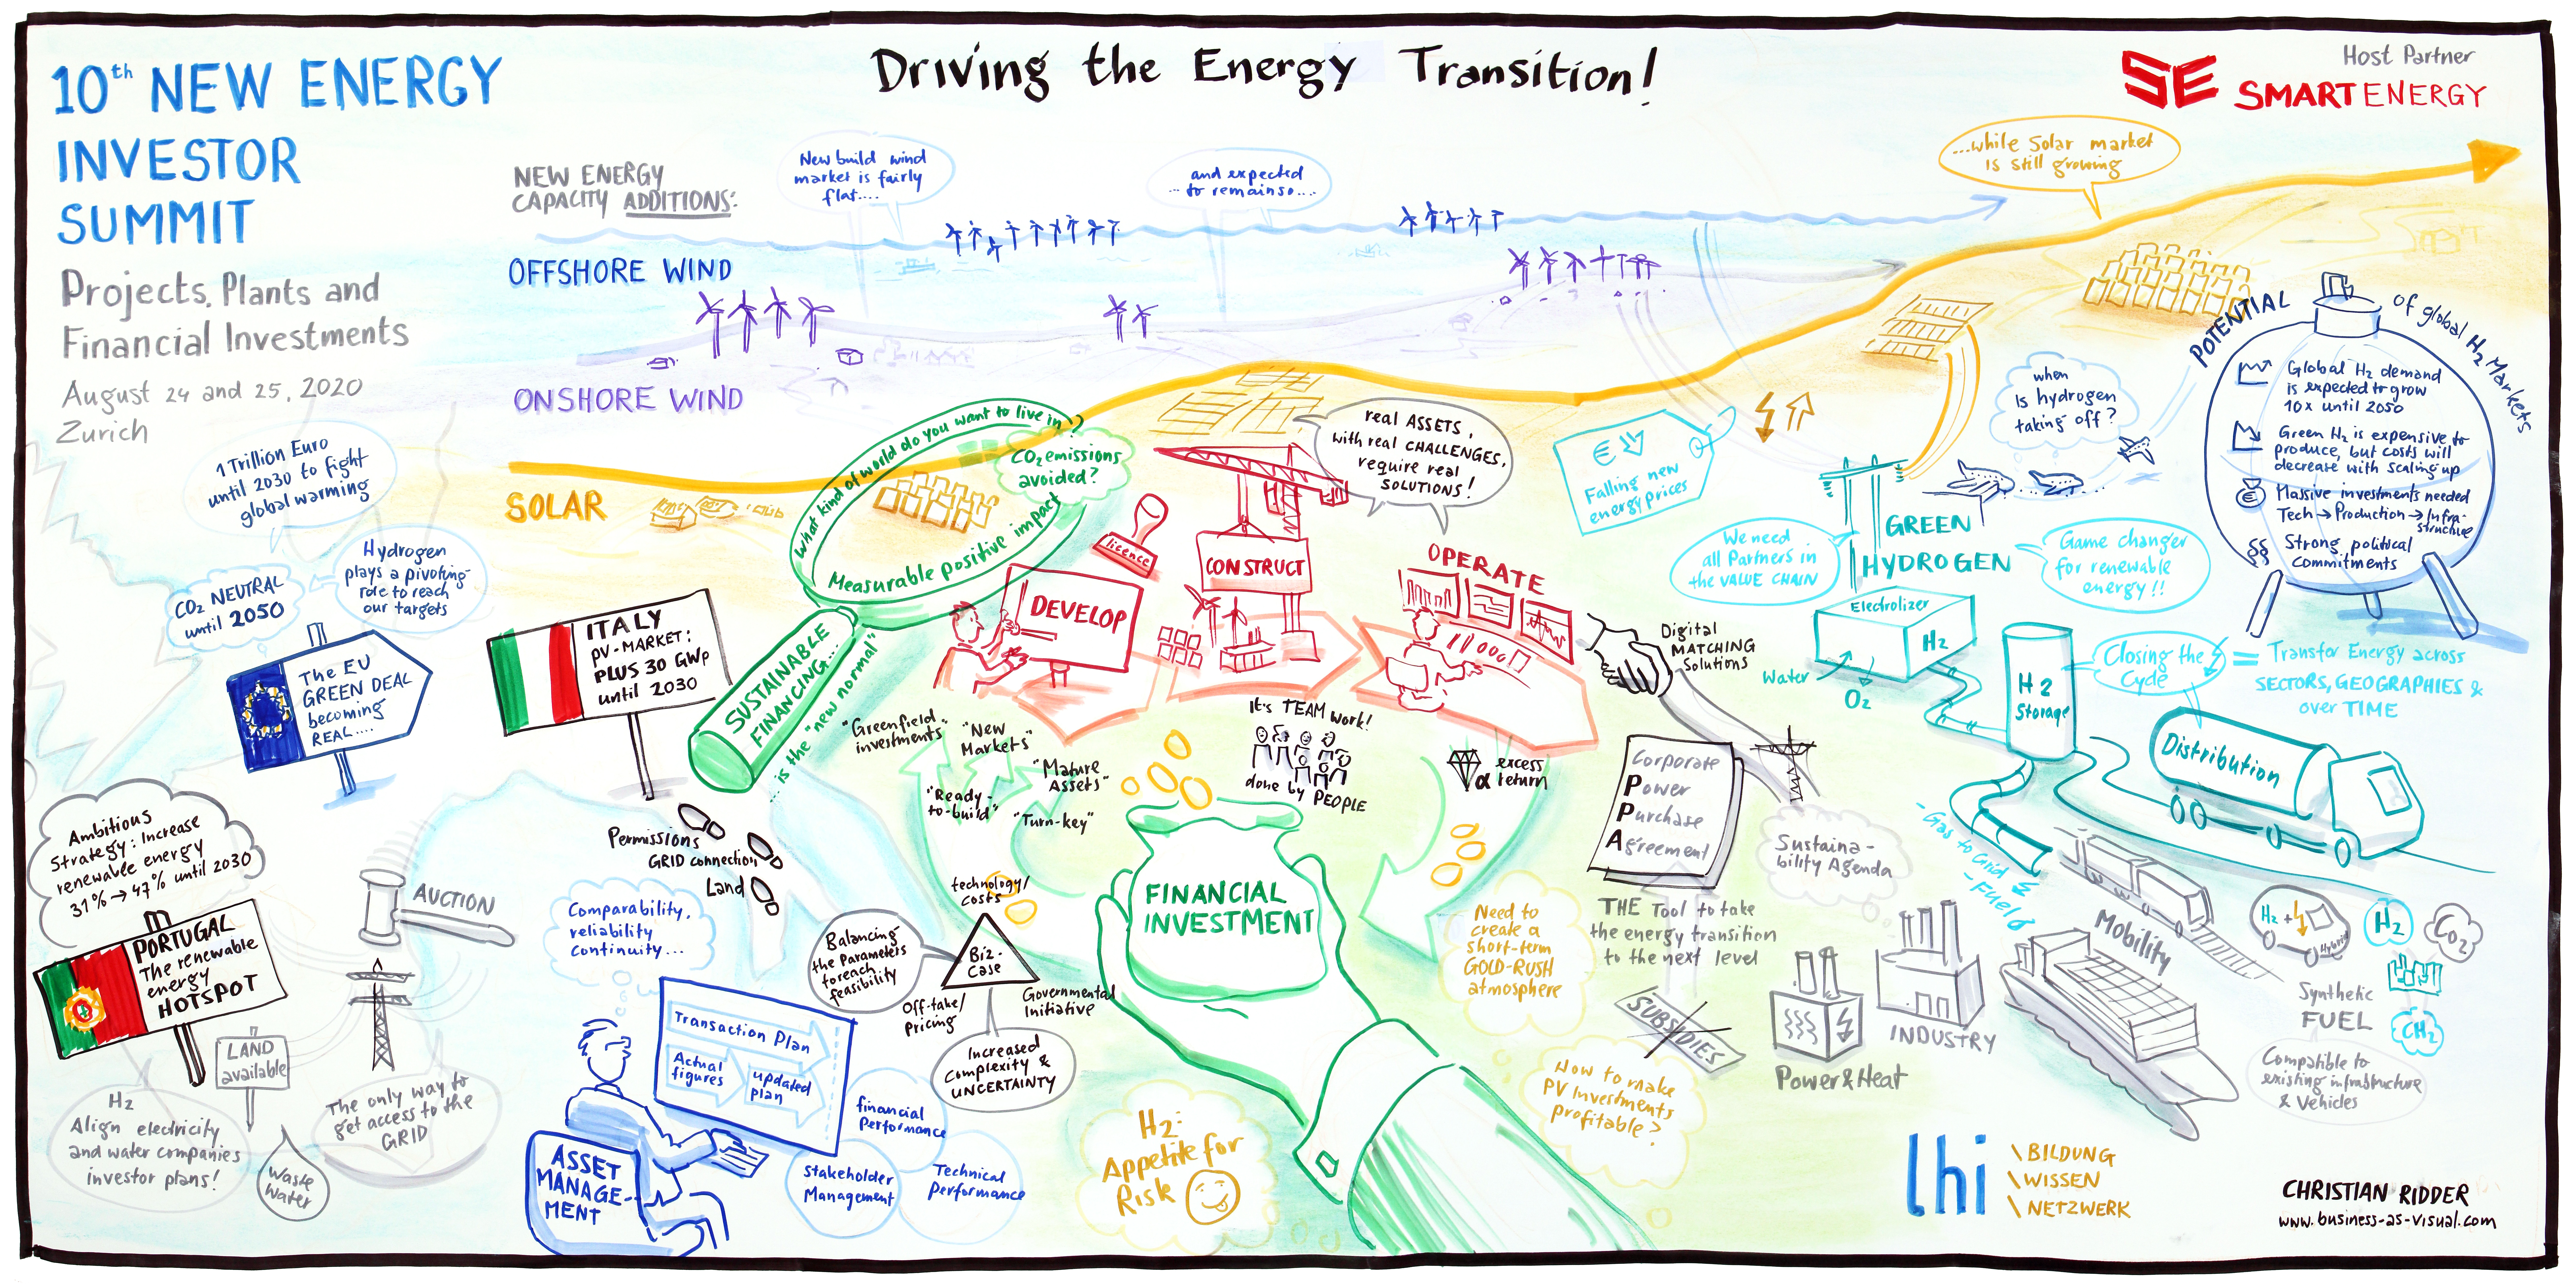 10th NEW ENERGY
INVESTOR
SUMMIT
Projects, Plants and
Financial Investments
August 24 and 25, 2020
Zurich
Driving the Energy Transition!
Host Partner
SE SMARTENERGY
NEW ENERGY
CAPACITY ADDITIONS:
New build wind
market is fairly
flat....
and expected
... to remain so....
...while Solar market
is still growing
OFFSHORE WIND
ONSHORE WIND
SOLAR
1 Trillion Euro
until 2030 to fight
global warming
CO2 NEUTRAL
until 2050
Hydrogen
plays a pivoting
role to reach
our targets
The EU
GREEN DEAL
becoming
REAL....
ITALY
PV-MARKET:
PLUS 30 GWp
until 2030
What kind of world do you want to live in?
CO2 emissions
avoided?
Measurable positive impact
SUSTAINABLE
FINANCING...
...is the "new normal"
licence
DEVELOP
CONSTRUCT
OPERATE
real ASSETS,
with real CHALLENGES,
require real
SOLUTIONS!
€
Falling new
energy prices
We need
all Partners in
the VALUE CHAIN
GREEN
HYDROGEN
Game changer
for renewable
energy!!
when
is hydrogen
taking off?
POTENTIAL of global H2 Markets
Global H2 demand
is expected to grow
10x until 2050
Green H2 is expensive to
produce, but costs will
decrease with scaling up
Massive investments needed
Tech → Production → Infra-
structure
§§ Strong political
Commitments
Electrolizer
H2
Water
O2
H2
Storage
Closing the
Cycle
= Transfer Energy across
SECTORS, GEOGRAPHIES &
over TIME
Distribution
- Gas to Grid
- Fuels
Mobility
H2 +
Hybrid
H2
CO2
CH2
Synthetic
FUEL
Compatible to
existing infrastructure
& Vehicles
Digital
MATCHING
Solutions
Corporate
Power
Purchase
Agreement
Sustaina-
bility Agenda
THE Tool to take
the energy transition
to the next level
SUBSIDIES
Power & Heat
INDUSTRY
"Greenfield-
investments"
"New
Markets"
"Mature
Assets"
"Ready-
to-build"
"Turn-key"
It's TEAM work!
done by PEOPLE
excess
α return
FINANCIAL
INVESTMENT
Need to
create a
short-term
GOLD-RUSH
atmosphere
How to make
PV Investments
profitable?
H2:
Appetite for
Risk
Permissions
GRID connection
Land
technology/
costs
Biz-
Case
Off-take/
pricing
Governmental
Initiative
Balancing
the Parameters
to reach
feasibility
Increased
Complexity &
UNCERTAINTY
Comparability,
reliability
continuity...
Transaction Plan
Actual
figures
updated
plan
ASSET
MANAGE-
MENT
financial
Performance
Stakeholder
Management
Technical
Performance
Ambitious
Strategy: Increase
renewable energy
31% → 47% until 2030
PORTUGAL
The renewable
energy
HOTSPOT
AUCTION
LAND
available
The only way to
get access to the
GRID
H2
Align electricity
and water companies
investor plans!
Waste
Water
lhi
\BILDUNG
\WISSEN
\NETZWERK
CHRISTIAN RIDDER
www.business-as-visual.com